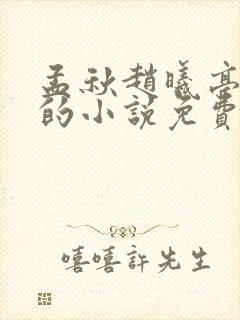 孟秋趙曦亭
的小說免費
嘻嘻許先生